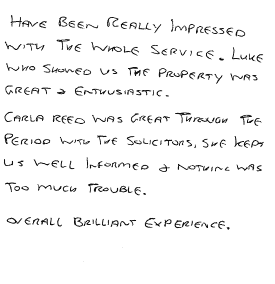 HAVE BEEN REALLY IMPRESSED
WITH THE WHOLE SERVICE. LUKE
WHO SHOWED US THE PROPERTY WAS
GREAT & ENTHUSIASTIC.
CARLA REED WAS GREAT THROUGH THE
PERIOD WITH THE SOLICITORS, SHE KEPT
US WELL INFORMED & NOTHING WAS
TOO MUCH TROUBLE.
OVERALL BRILLIANT EXPERIENCE.